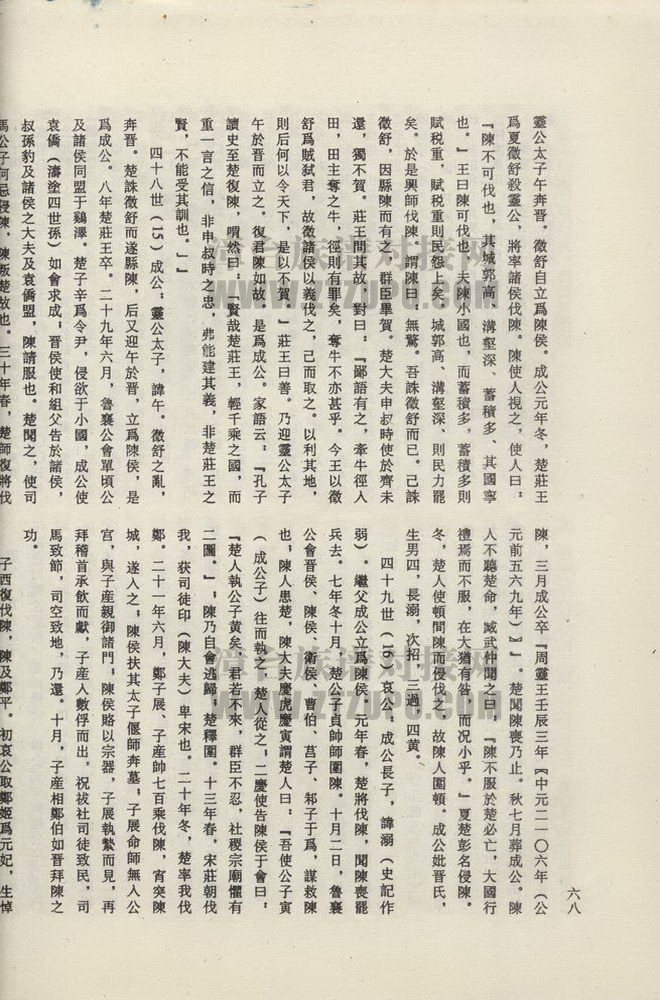 靈公太子午奔晋。徵舒自立爲陳侯。成公元年冬，楚莊王
爲夏徵舒殺靈公，將率諸侯伐陳。陳使人視之，使人曰：
『陳不可伐也，其城郭高、溝壑深、蓄積多、其國寧
也。』王曰陳可伐也。夫陳小國也，而蓄積多，蓄積多則
賦税重，賦税重則民怨上矣。城郭高、溝壑深、則民力罷
矣。於是興師伐陳。謂陳曰：無驚。吾誅徵舒而已。己誅
徵舒，因縣陳而有之。群臣畢賀。楚大夫申叔時使於齊未
還，獨不賀。莊王問其故，對曰：『鄙語有之，牽牛徑人
田，田主奪之牛，徑則有罪矣，奪牛不亦甚乎。今王以徵
舒爲賊弑君，故徵諸侯以義伐之，己而取之。以利其地，
則后何以令天下，是以不賀。』莊王曰善。乃迎靈公太子
午於晋而立之。復君陳如故，是爲成公。家語云：『孔子
讀史至楚復陳，喟然曰：「賢哉楚莊王，輕千乘之國，而
重一言之信，非申叔時之忠，弗能建其義，非楚莊王之
賢，不能受其訓也。」』
四十八世（15）成公：靈公太子，諱午。徵舒之亂，
奔晋。楚誅徵舒而遂縣陳，后又迎午於晋，立爲陳侯，是
爲成公。八年楚莊王卒。二十九年六月，魯襄公會單頃公
及諸侯同盟于鷄澤。楚子辛爲令尹，侵欲于小國，成公使
袁僑（濤塗四世孫）如會求成；晋侯使和組父告於諸侯，
叔孫豹及諸侯之大夫及袁僑盟，陳請服也。楚聞之，使司
馬公子何忌侵陳，陳叛楚故也。三十年春，楚師復將伐
陳，三月成公卒『周靈王壬辰三年〖中元二一〇六年（公
元前五六九年）〗』。楚聞陳喪乃止。秋七月葬成公。陳
人不聽楚命，臧武仲聞之曰：『陳不服於楚必亡，大國行
禮焉而不服，在大猶有咎，而况小乎。』夏楚彭名侵陳。
冬，楚人使頓間陳而侵伐之，故陳人圍頓。成公妣晋氏，
生男四，長溺，次招，三過，四黄。
四十九世（16）哀公：成公長子，諱溺（史記作
弱）。繼父成公立爲陳侯。元年春，楚將伐陳，聞陳喪罷
兵去。七年冬十月，楚公子貞帥師圍陳。十月二日，魯襄
公會晋侯、陳侯、衛侯、曹伯、莒子、邾子于爲，謀救陳
也；陳人患楚，陳大夫慶虎慶寅謂楚人曰：『吾使公子寅
（成公子）往而執之，楚人從之；二慶使告陳侯于會曰：
『楚人執公子黄矣，君若不來，群臣不忍，社稷宗廟懼有
二圖。』；陳乃自會逃歸，楚釋圍。十三年春，宋莊朝伐
我，获司徒印（陳大夫）卑宋也。二十年冬，楚率我伐
鄭。二十一年六月，鄭子展、子産帥七百乘伐陳，宵突陳
城，遂入之；陳侯扶其太子偃師奔墓；子展命師無入公
宫，與子産親御諸門；陳侯賂以宗器，子展執縶而見，再
拜稽首承飲而獻，子産入數俘而出，祝祓社司徒致民，司
馬致節，司空致地，乃還。十月，子産相鄭伯如晋拜陳之
功。
子西復伐陳，陳及鄭平。初哀公取鄭姬爲元妃，生悼
六八
漳台族谱对接网
WWW.ZTZUPU.COM
漳台族谱对接网
WWW.ZTZUPU.COM